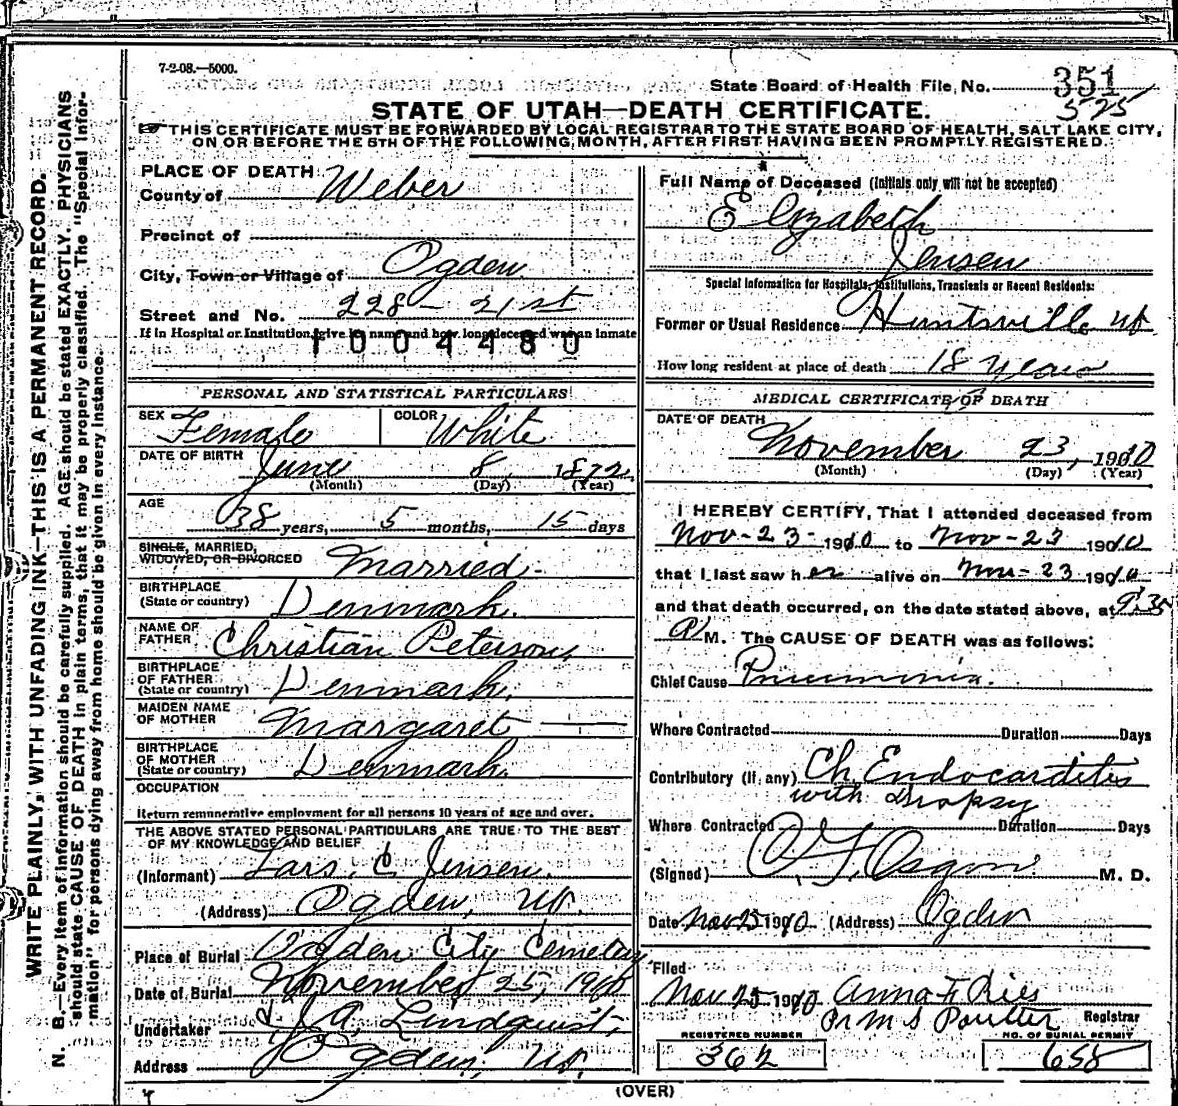 7-2-08.—5000.
State Board of Health File, No. 351
575
STATE OF UTAH—DEATH CERTIFICATE.
THIS CERTIFICATE MUST BE FORWARDED BY LOCAL REGISTRAR TO THE STATE BOARD OF HEALTH, SALT LAKE CITY,
ON OR BEFORE THE 5TH OF THE FOLLOWING MONTH, AFTER FIRST HAVING BEEN PROMPTLY REGISTERED.
WRITE PLAINLY, WITH UNFADING INK—THIS IS A PERMANENT RECORD.
N. B.—Every item of information should be carefully supplied. AGE should be stated EXACTLY. PHYSICIANS
should state CAUSE OF DEATH in plain terms, that it may be properly classified. The "Special Infor-
mation" for persons dying away from home should be given in every instance.
PLACE OF DEATH
County of Weber
Precinct of
City, Town or Village of Ogden
Street and No. 228 - 21st
If in Hospital or Institution, give its name and how long deceased was an inmate
1004480
PERSONAL AND STATISTICAL PARTICULARS
SEX Female COLOR White
DATE OF BIRTH June 8, 1872
(Month) (Day) (Year)
AGE 38 years, 5 months, 15 days
SINGLE, MARRIED,
WIDOWED, OR DIVORCED Married
BIRTHPLACE
(State or country) Denmark.
NAME OF
FATHER Christian Peterson
BIRTHPLACE
OF FATHER
(State or country) Denmark.
MAIDEN NAME
OF MOTHER Margaret
BIRTHPLACE
OF MOTHER
(State or country) Denmark.
OCCUPATION
Return remunerative employment for all persons 10 years of age and over.
THE ABOVE STATED PERSONAL PARTICULARS ARE TRUE TO THE BEST
OF MY KNOWLEDGE AND BELIEF
(Informant) Lars. C. Jensen.
(Address) Ogden, Ut.
Place of Burial Ogden City Cemetery
Date of Burial November 25, 1910
Undertaker J. A. Lindquist,
Address Ogden, Ut.
Full Name of Deceased (Initials only will not be accepted)
Elizabeth
Jensen
Special Information for Hospitals, Institutions, Transients or Recent Residents:
Former or Usual Residence Huntsville Ut
How long resident at place of death 18 years
MEDICAL CERTIFICATE OF DEATH
DATE OF DEATH
November 23, 1910
(Month) (Day) (Year)
I HEREBY CERTIFY, That I attended deceased from
Nov-23-1910 to Nov-23 1910
that I last saw her alive on Nov-23 1910
and that death occurred, on the date stated above, at 9:35
M. The CAUSE OF DEATH was as follows:
Chief Cause Pneumonia.
Where Contracted Duration Days
Contributory (if any) Ch Endocarditis
with Dropsy
Where Contracted Duration Days
(Signed) M. D.
Date Nov 25 1910 (Address) Ogden
Filed
Nov 25 1910 Anna F Ries
Pr M S Poulter Registrar
REGISTERED NUMBER NO. OF BURIAL PERMIT
362 658
(OVER)